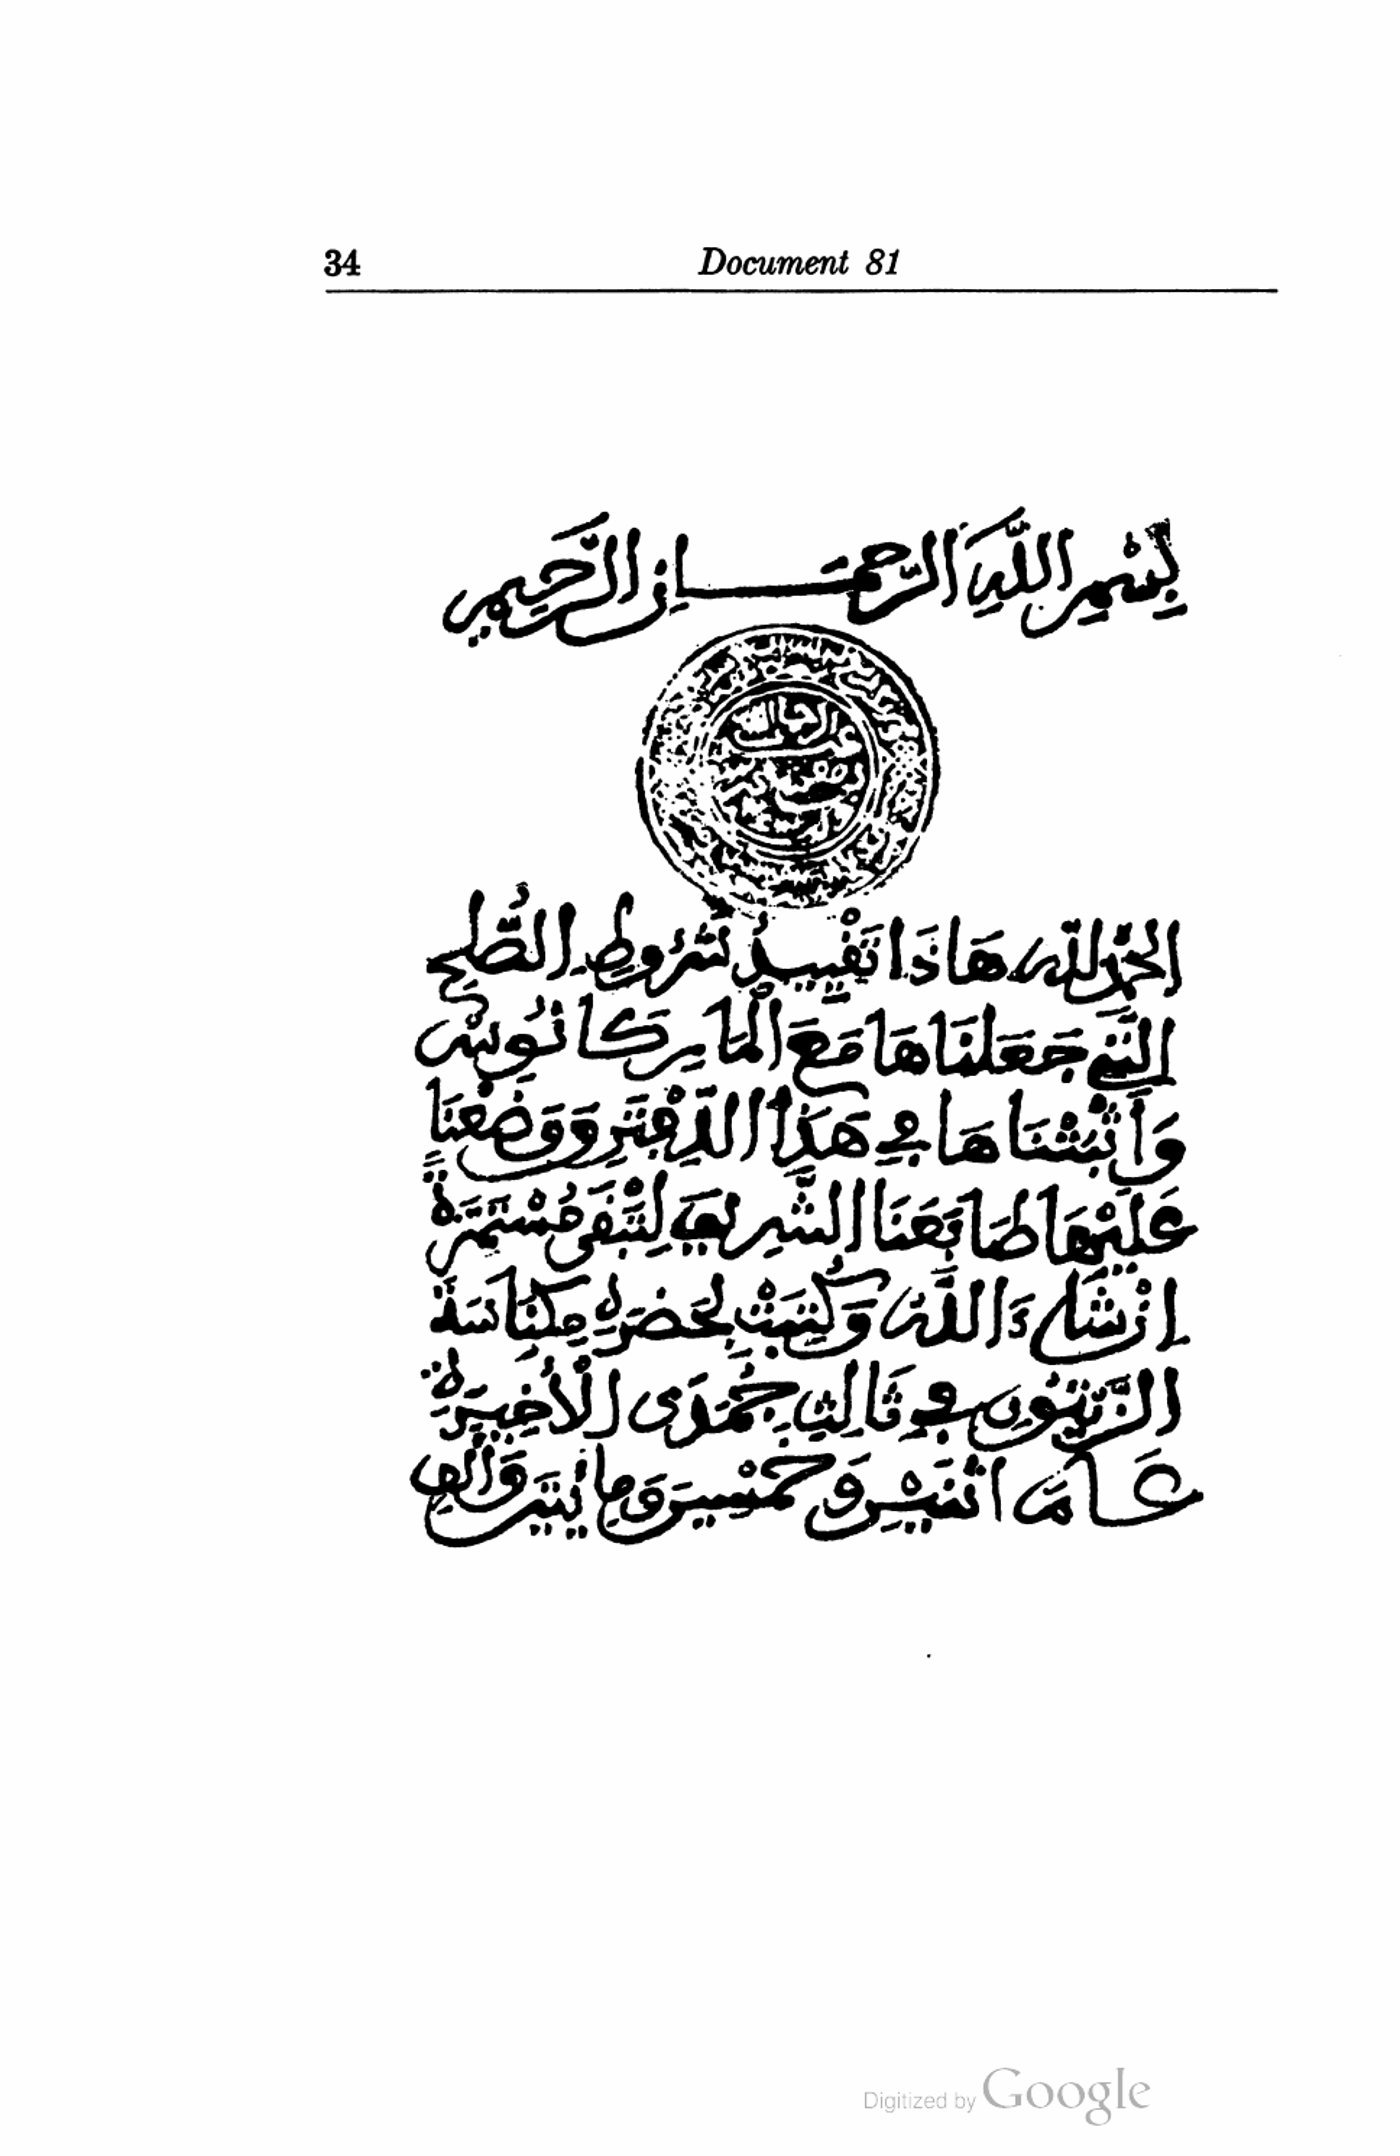 34 Document 81
بِسْمِ اللَّهِ الرَّحْمَانِ الرَّحِيمِ
عبد الرحمان
الحمد لله هَاذَا تَقْيِيدُ شُرُوطِ الصُّلْحِ
التِي جَعَلْنَاهَا مَعَ الْمَارِكَانُوس
وَأَثْبَتْنَاهَا فِي هَذَا الدَّفْتَرِ وَوَضَعْنَا
عَلَيْهَا طَابَعَنَا الشَّرِيفَ لِتَبْقَى مُسْتَمِرَّةً
اِنْ شَاءَ اللَّهُ وَكُتِبَتْ بِحَضْرَةِ مِكْنَاسَةَ
الزَّيْتُونِ فِي ثَالِثِ جُمَدَى الْأَخِيرَةِ
عَامَ اثْنَيْنِ وَخَمْسِينَ وَمِائَتَيْنِ وَأَلْفٍ
Digitized by Google